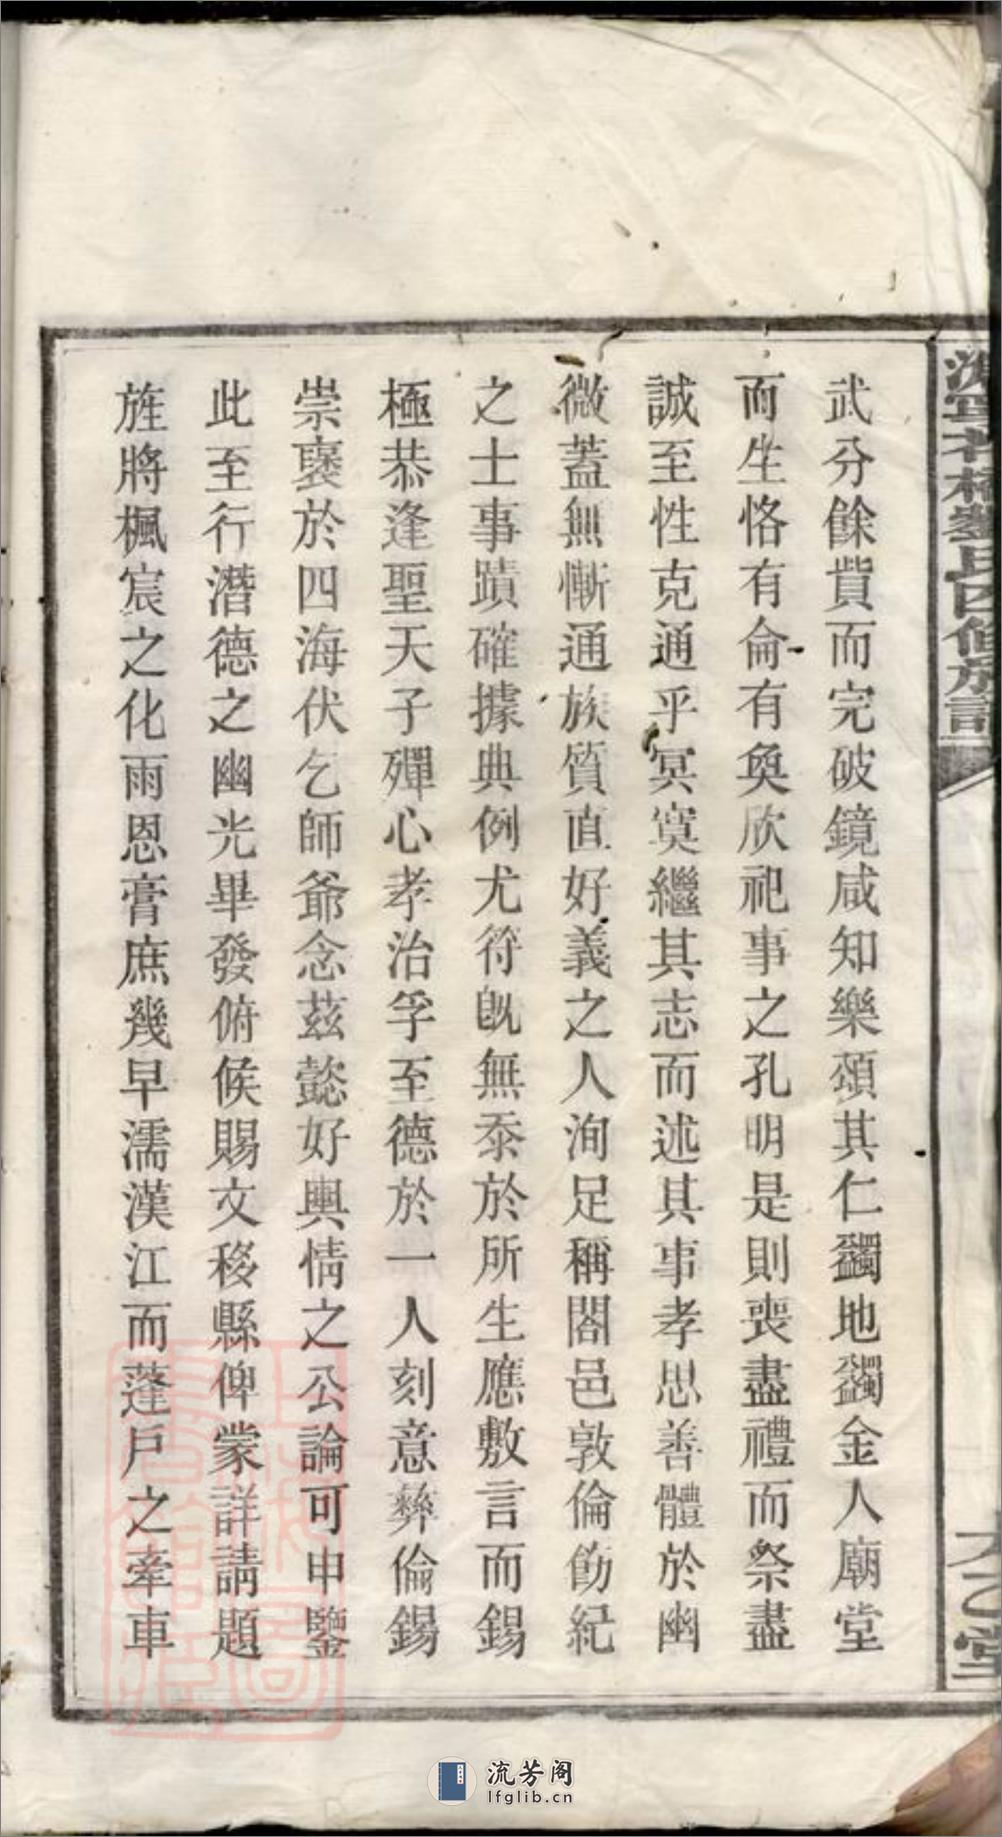 武分餘貲而完破鏡咸知樂頌其仁蠲地蠲金人廟堂
而生恪有侖有奐欣祀事之孔明是則喪盡禮而祭盡
誠至性克通乎冥寞繼其志而述其事孝思善體於幽
微蓋無慚通族質直好義之人洵足稱閤邑敦倫飭紀
之士事蹟確據典例尤符旣無忝於所生應敷言而錫
極恭逢聖天子殫心孝治孚至德於一人刻意彝倫錫
崇褒於四海伏乞師爺念茲懿好輿情之公論可申鑒
此至行潛德之幽光畢發俯候賜文移縣俾蒙詳請題
旌將楓宸之化雨恩膏庶幾早濡漢江而蓬戶之牽車
氏四修族譜
乙堂
流芳阁
lfglib.cn